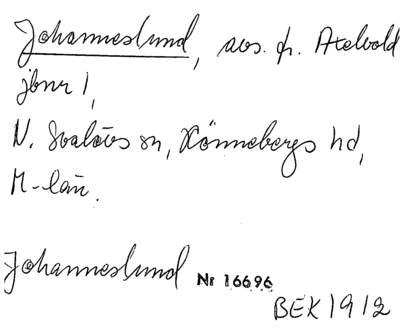 Johanneslund, avs. fr. Axelvold
jbnr 1,
N. Svalövs sn, Rönnebergs hd,
M-län.
Johanneslund Nr 16696
BEK 1912